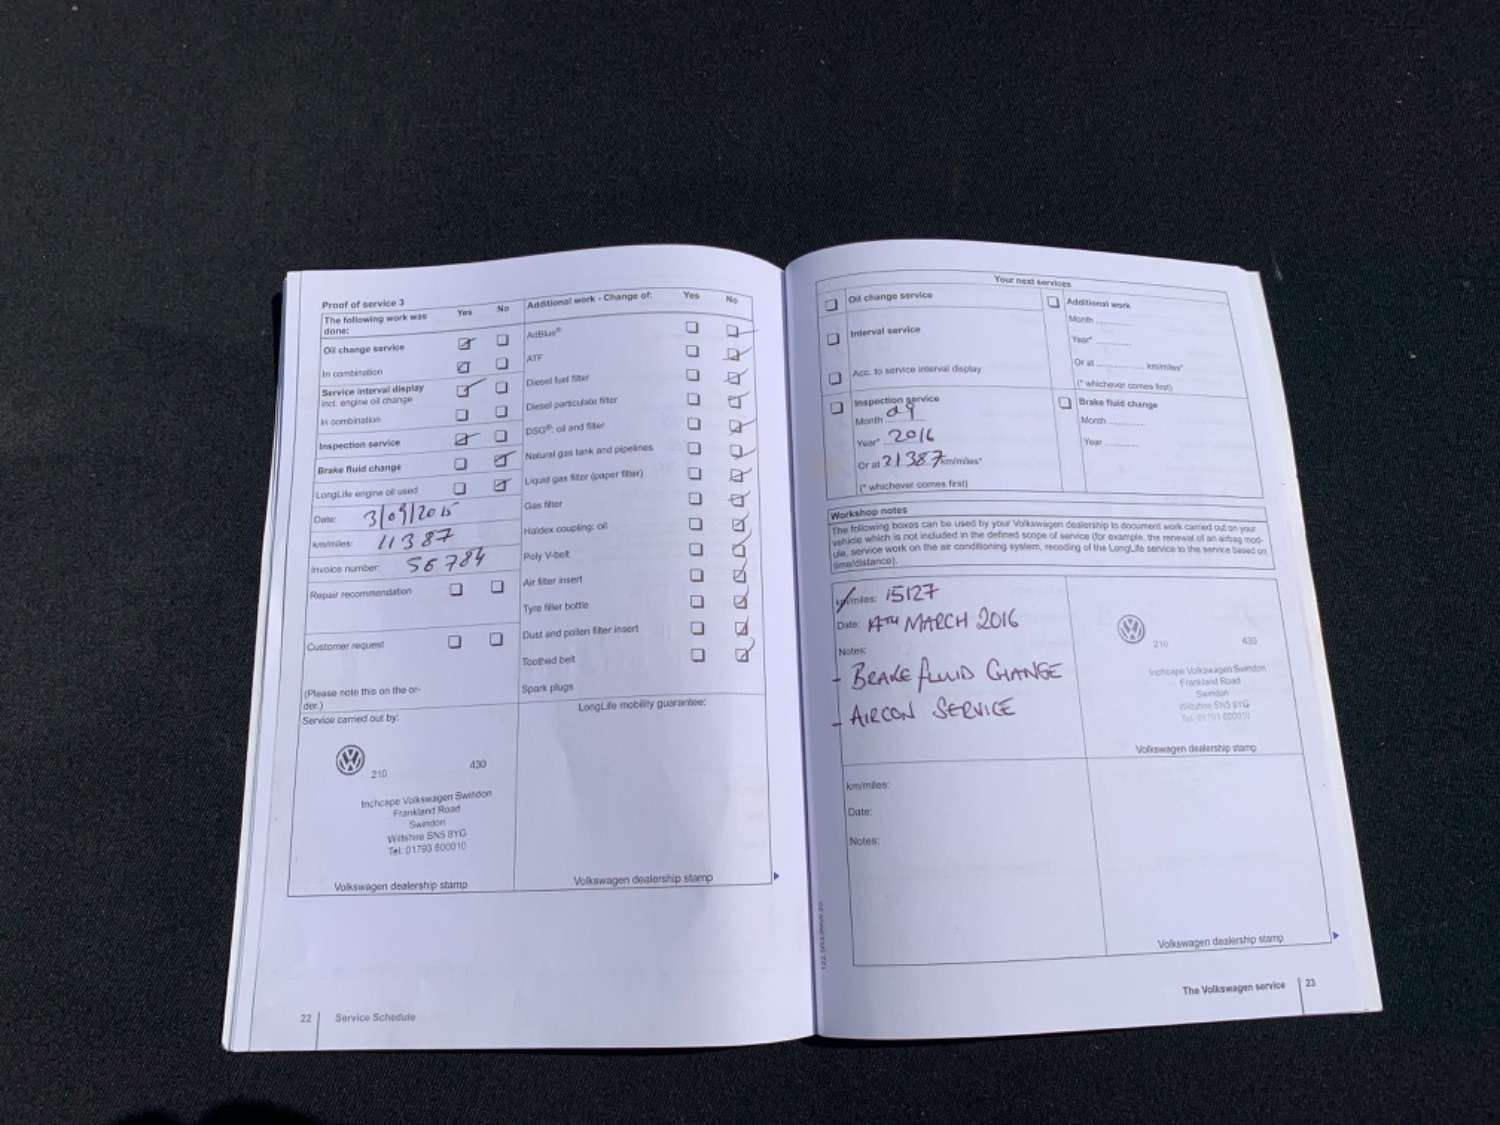 Proof of service 3
The following work was done:
Yes No
Oil change service
In combination
Service interval display
incl. engine oil change
In combination
Inspection service
Brake fluid change
LongLife engine oil used
Date: 3/09/2015
km/miles: 11387
Invoice number: 56784
Repair recommendation
Customer request
(Please note this on the or-
der.)
Service carried out by:
210 430
Inchcape Volkswagen Swindon
Frankland Road
Swindon
Wiltshire SN5 8YG
Tel. 01793 600010
Volkswagen dealership stamp
Additional work - Change of: Yes No
AdBlue®
ATF
Diesel fuel filter
Diesel particulate filter
DSG®: oil and filter
Natural gas tank and pipelines
Liquid gas filter (paper filter)
Gas filter
Haldex coupling: oil
Poly V-belt
Air filter insert
Tyre filler bottle
Dust and pollen filter insert
Toothed belt
Spark plugs
LongLife mobility guarantee:
Volkswagen dealership stamp
22 Service Schedule
Your next services
Oil change service
Interval service
Acc. to service interval display
Additional work
Month ..........
Year* ..........
Or at .................... km/miles*
(* whichever comes first)
Inspection service
Month 09
Year* 2016
Or at 21387 km/miles*
(* whichever comes first)
Brake fluid change
Month ..........
Year ..........
Workshop notes
The following boxes can be used by your Volkswagen dealership to document work carried out on your
vehicle which is not included in the defined scope of service (for example, the renewal of an airbag mod-
ule, service work on the air conditioning system, recoding of the LongLife service to the service based on
time/distance).
km/miles: 15127
Date: MARCH 2016
Notes:
- BRAKE FLUID CHANGE
- AIRCON SERVICE
210 430
Inchcape Volkswagen Swindon
Frankland Road
Swindon
Wiltshire SN5 8YG
Tel. 01793 600010
Volkswagen dealership stamp
km/miles:
Date:
Notes:
Volkswagen dealership stamp
The Volkswagen service 23